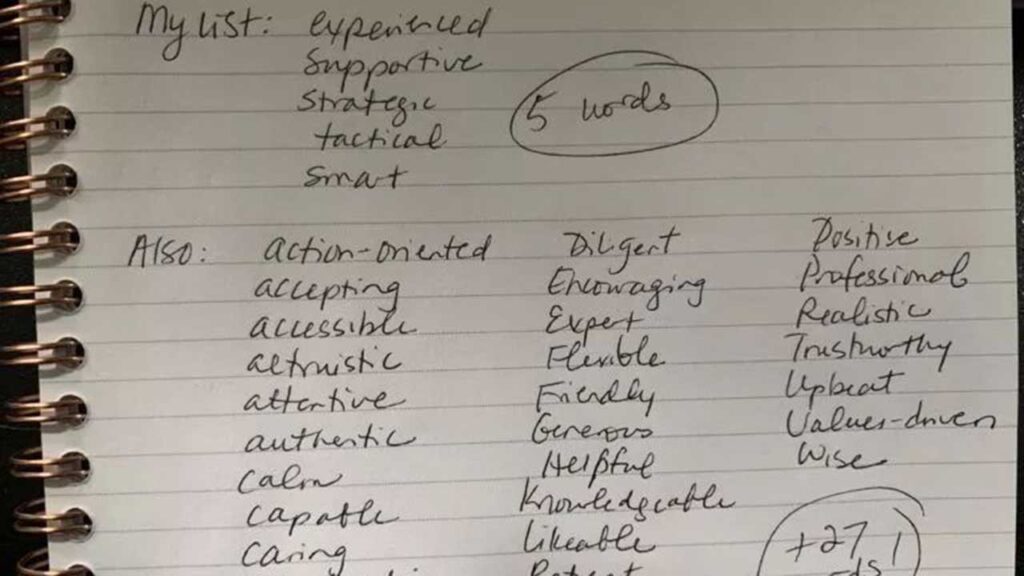 My list: experienced
Supportive
Strategic
tactical
Smart
5 words
Also: action-oriented
accepting
accessible
altruistic
attentive
authentic
calm
capable
caring
Diligent
Encouraging
Expert
Flexible
Friendly
Generous
Helpful
Knowledgeable
Likeable
Patient
Positive
Professional
Realistic
Trustworthy
Upbeat
Values-driven
Wise
+27